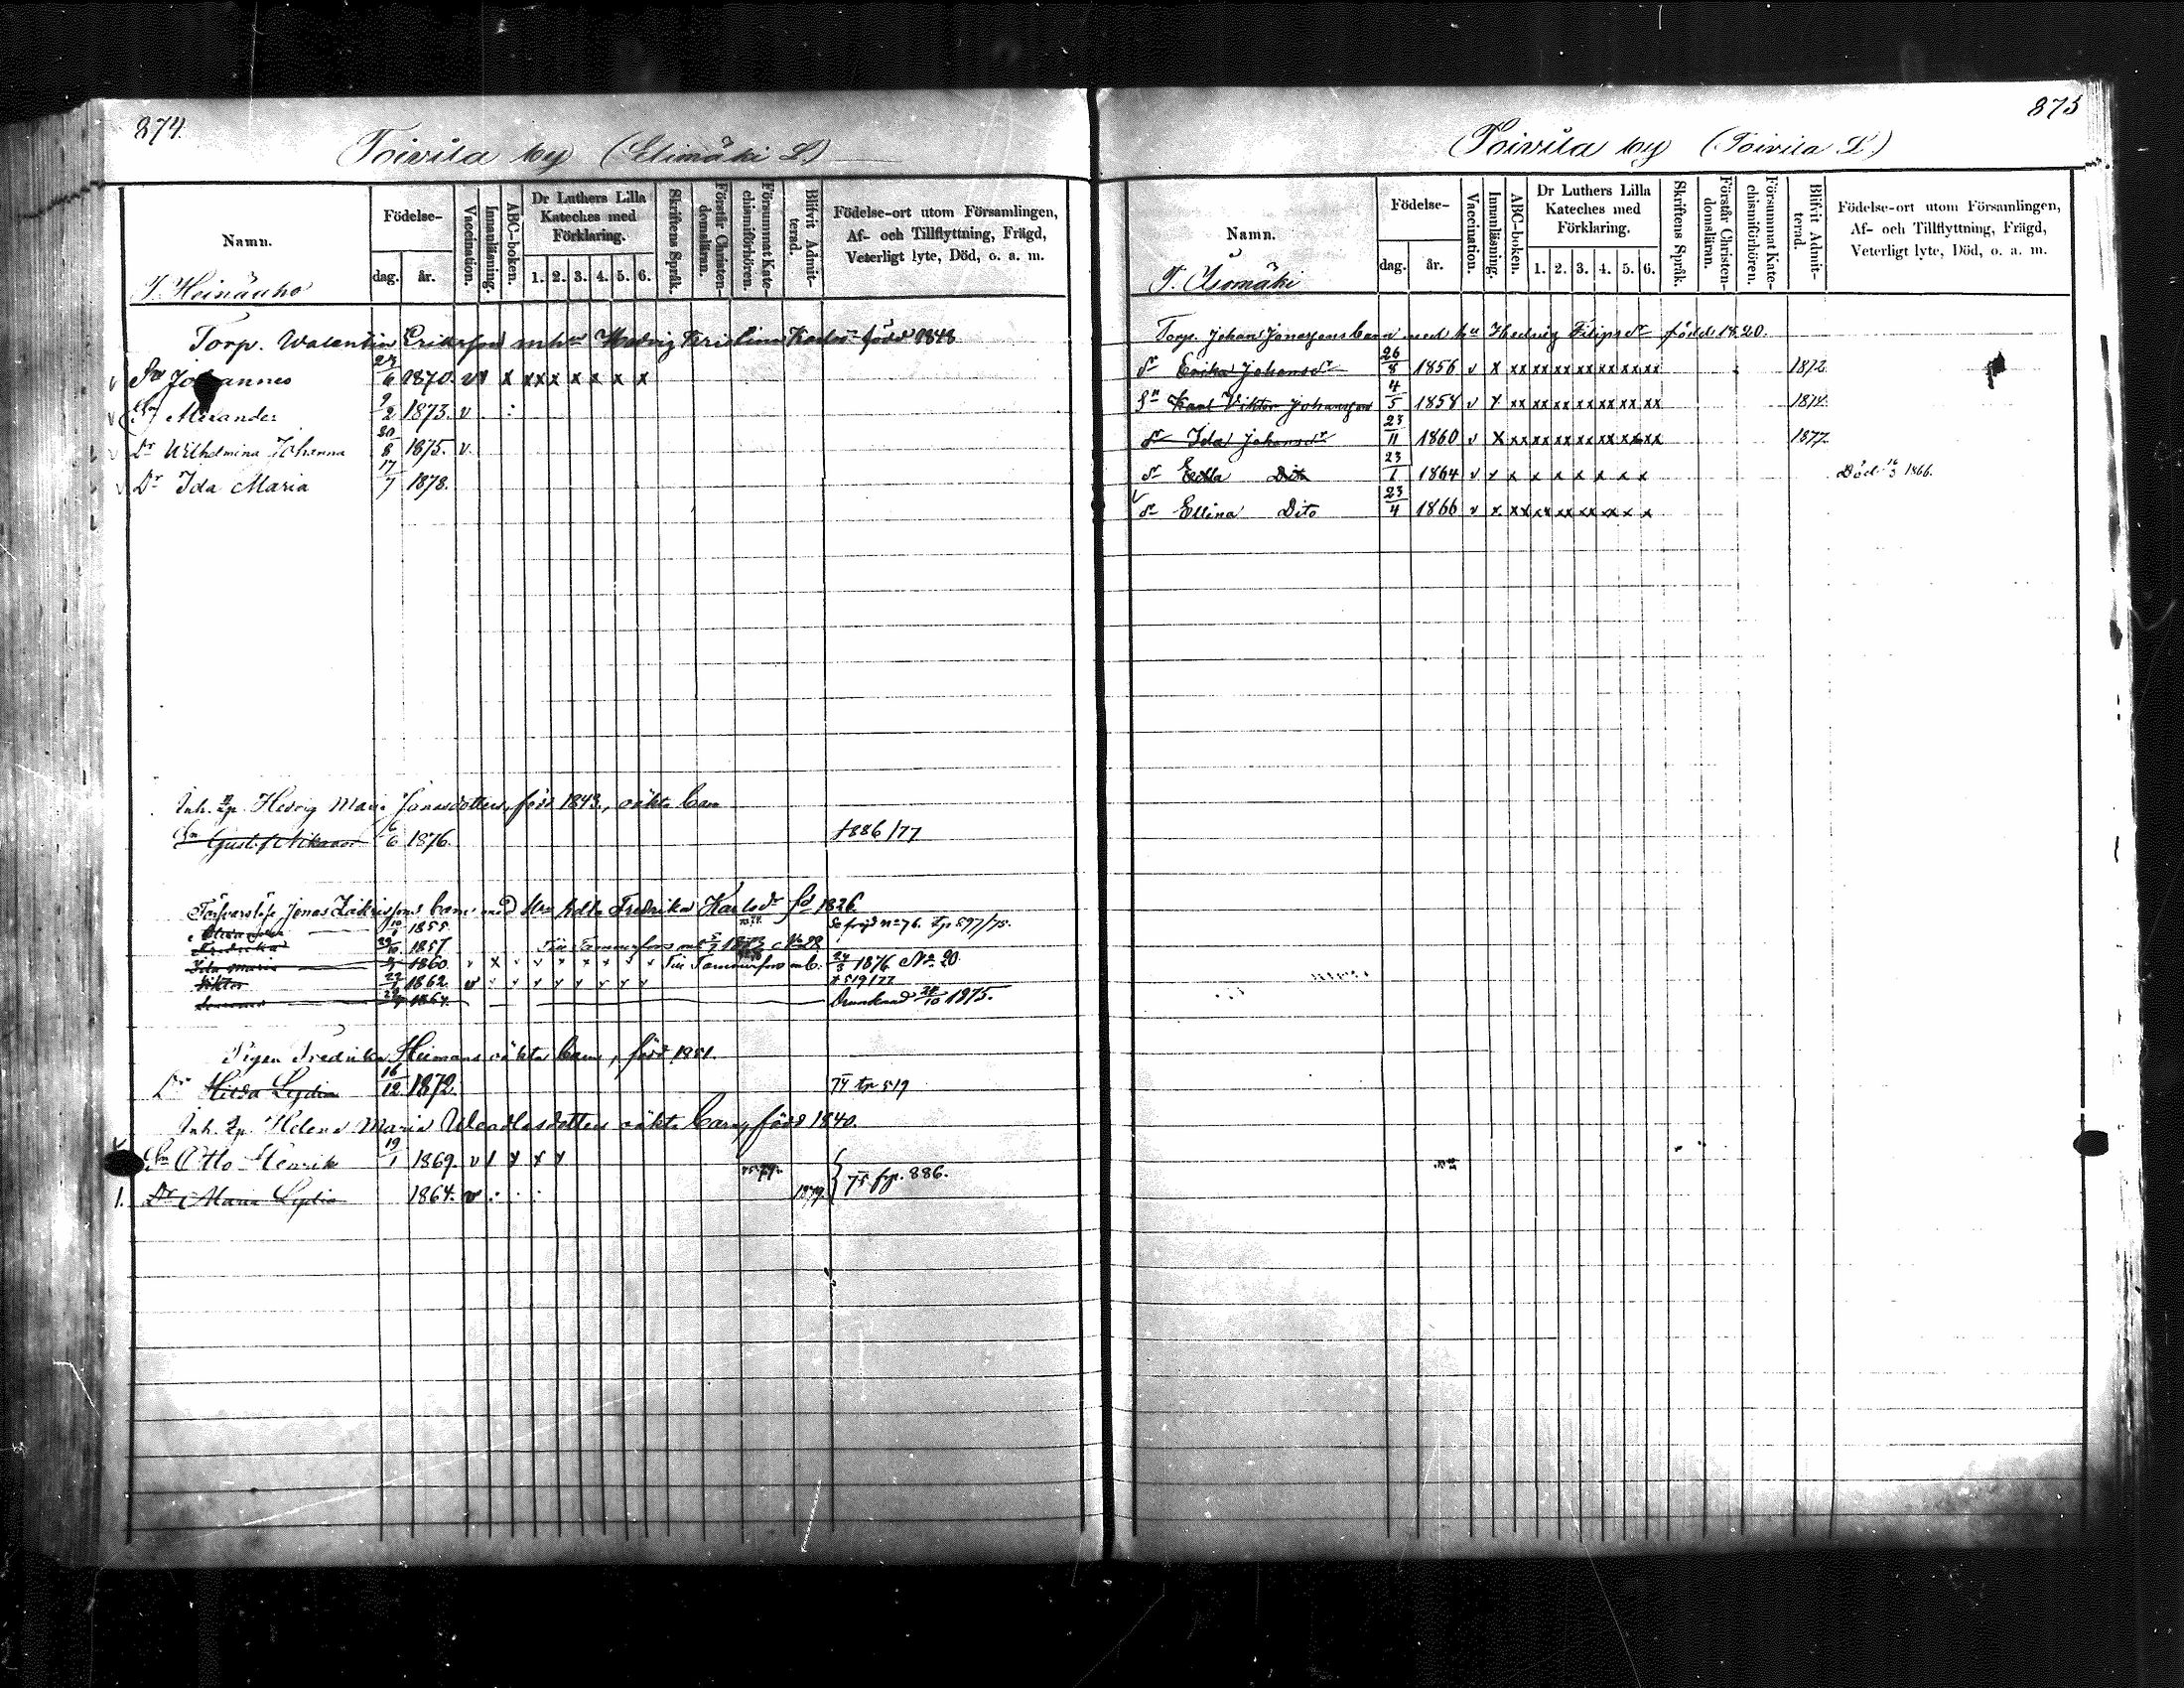 874.
Toivila by (Elimäki L.)
Namn.
Födelse-
dag. år.
Vaccination.
Innanläsning.
ABC-boken.
Dr Luthers Lilla Kateches med Förklaring.
1. 2. 3. 4. 5. 6.
Skriftens Språk.
Förstår Christen-domsläran.
Försummat Kate-chismiförhören.
Blifvit Admit-terad.
Födelse-ort utom Församlingen, Af- och Tillflyttning, Frägd, Veterligt lyte, Död, o. a. m.
T. Heinäaho
Torp. Walentin Eriksson mhu Hedvig Kristina Karlsdr född 1848
Sn Johannes 27/6 1870. v v x xx x x x x x
Sn Alexander 9/2 1873. v
Dr Wilhelmina Johanna 30/8 1875. v.
Dr Ida Maria 17/7 1878.
Inh. Hedvig Maria Jonasdotters, född 1843, oäkta barn
Sn Gustaf Nikanor 6/6 1876. f 886/77
Jonas barn med Fredrika Karlsdr fd 1826
1855. Se frejd No 76. tp 597/75.
Fredrika 29/10 1857. Till Tammerfors mb 5/7 1873 No 28
Ida Maria 1860. v x v v x x x v x Till Tammerfors mb. 24/3 1876 No 20.
Viktor 1862. v v v v v v v v 519/77
1864. Drunknad 24/10 1875.
Pigan Fredrika Heimans oäkta barn, född 1851.
Dr Hilda Lydia 16/12 1872. 74 tp 519
Inh. Helena Maria oäkta barn, född 1840.
Sn Otto Henrik 19/1 1869. v / x x x
1. Dr Maria Lydia 1864. v 1879. 75 fp. 886.
875
Toivila by (Toivila L.)
Namn.
Födelse-
dag. år.
Vaccination.
Innanläsning.
ABC-boken.
Dr Luthers Lilla Kateches med Förklaring.
1. 2. 3. 4. 5. 6.
Skriftens Språk.
Förstår Christen-domsläran.
Försummat Kate-chismiförhören.
Blifvit Admit-terad.
Födelse-ort utom Församlingen, Af- och Tillflyttning, Frägd, Veterligt lyte, Död, o. a. m.
T. Isomäki
Torp. Johan Jonassons barn med hu Hedvig Filipsdr född 1820.
dr Erika Johansdr 26/8 1856 v x xx xx xx xx xx xx xx 1872
Sn Karl Viktor Johansson 4/5 1858 v x xx xx xx xx xx xx xx 1874.
dr Ida Johansdr 23/11 1860 v x xx xx xx xx xx xx xx 1877.
dr Edla Dito 23/1 1864 v x x x x x x x x Död 1866.
dr Ellina Dito 23/4 1866 v x xx xx xx xx xx x x